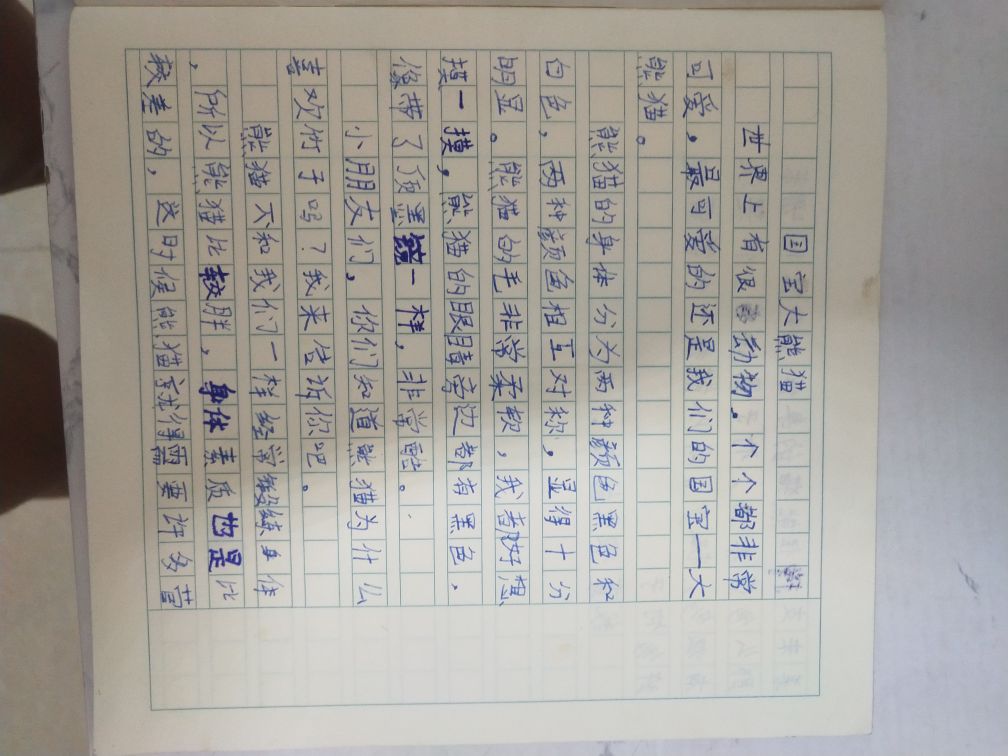 国宝大熊猫
世界上有很动物。个个都非常
可爱。最可爱的还是我们的国宝——大
熊猫。
熊猫的身体分为两种颜色黑色和
白色，两种颜色相互对称，显得十分
明显。熊猫的毛非常柔软，我都好想
摸一摸，熊猫的眼睛旁边都有黑色，
像带了顶黑镜一样，非常酷。
小朋友们，你们知道熊猫为什么
喜欢竹子吗？我来告诉你吧。
熊猫不和我们一样经常锻练身体
，所以熊猫比较胖，身体素质也是比
较差的，这时候熊猫就得需要许多营